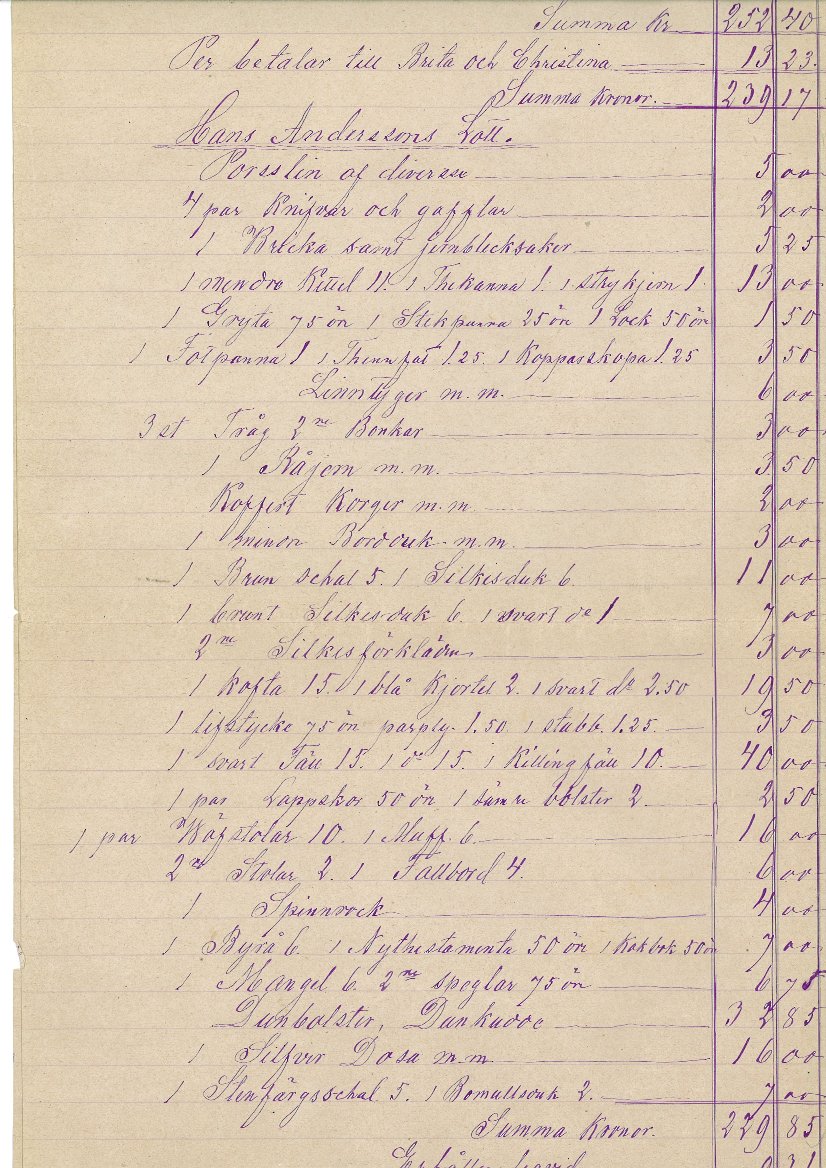 Summa Kr 252 40
Per betalar till Brita och Christina 13 23
Summa Kronor. 239 17
Hans Anderssons Lott.
Porsslin af diversse 5 00
4 par Knifvar och gafflar 2 00
1 Bricka samt jernblecksaker 5 25
1 mendra Kittel 11. 1 Thekanna 1. 1 strykjern 1. 13 00
1 Gryta 75 ön 1 Stekpanna 25 ön 1 Lock 50 ön 1 50
1 Fotpanna 1 1 Thennfat 1.25. 1 Kopparskopa 1.25 3 50
Linntyger m.m. 6 00
3 st Tråg 2ne Bonkar 3 00
1 Råjern m.m. 3 50
Koffert Korger m.m 2 00
1 mindre Bordduk m.m. 3 00
1 Brun schal 5. 1 Silkisduk 6. 11 00
1 brunt Silkisduk 6. 1 svart do 1 7 00
2ne Silkisförkläden 3 00
1 Kofta 15. 1 blå Kjortel 2. 1 svart do 2.50 19 50
1 lifstycke 75 ön parply. 1.50. 1 stubb. 1.25. 3 50
1 svart Fäll 15. 1 do 15. 1 Killingfäll 10. 40 00
1 par Lappskor 50 ön 1 sämre bolster 2. 2 50
1 par Wäfstolar 10. 1 Muff. 6. 16 00
2ne Stolar 2. 1 Fällbord 4. 6 00
1 Spinnrock 4 00
1 Byrå 6. 1 Nythestamente 50 öre 1 Kokbok 50 ön 7 00
1 Mangel 6. 2ne speglar 75 ön 6 75
Dunbolster, Dunkudde 32 85
1 Silfver Dosa m.m 16 00
1 Stenfärgsschal 5. 1 Bomullsduk 2. 7 00
Summa Kronor. 229 85
9 31